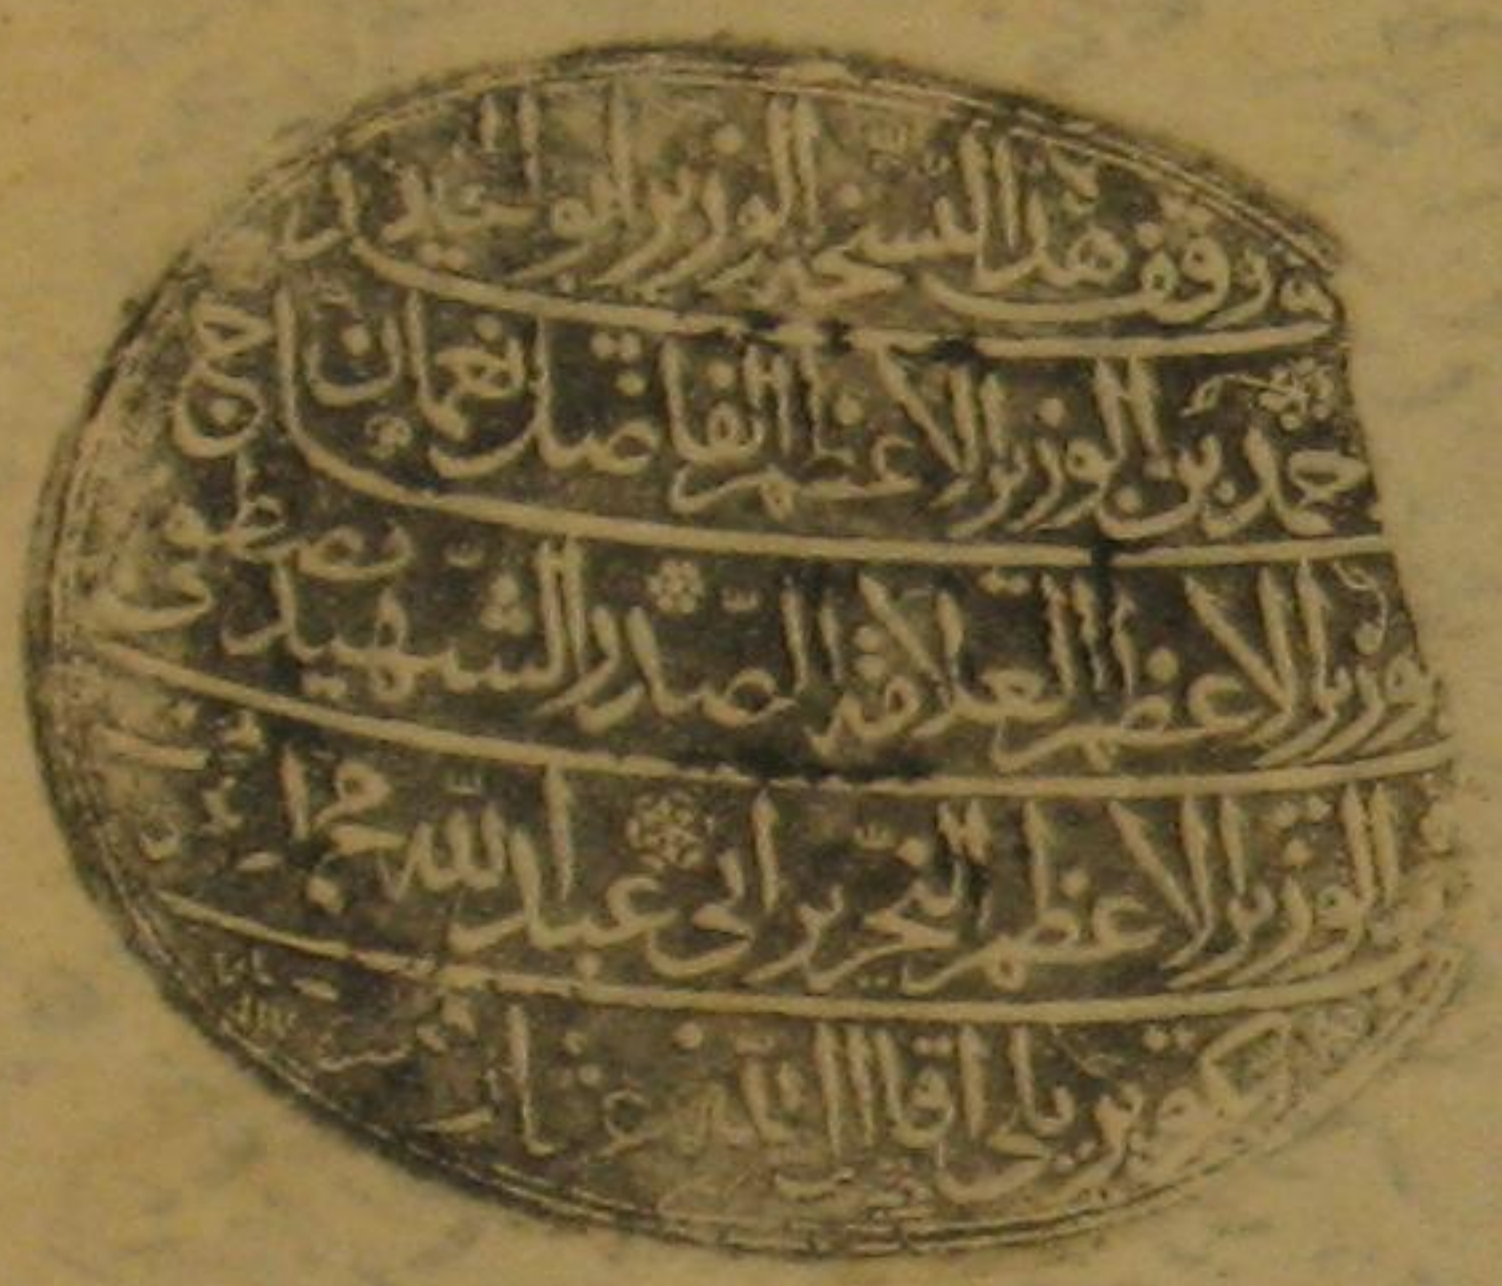 وقف هذا النسخة الوزير ابو الخير الحاج
احمد بن الوزير الاعظم الفاضل نعمان
الوزير الاعظم العلامة الصدر الشهيد مصطفى
الوزير الاعظم النحرير ابي عبد الله محمد
كوپريلي اقال الله عثار